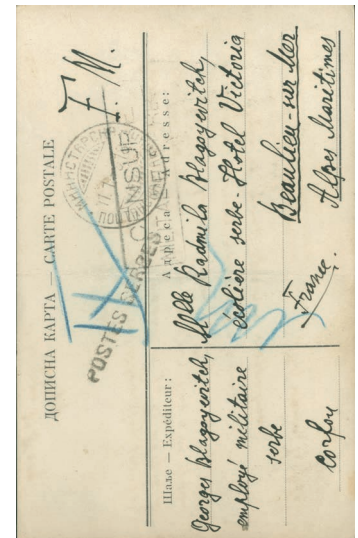 ДОПИСНА КАРТА — CARTE POSTALE
F. M.
POSTES SERBES
CENSURE
Шаље — Expéditeur:
Georges Blagoyevitch,
employé militaire
serbe
Corfou
Адреса — Adresse:
Mlle Radmila Blagoyevitch,
écolière serbe - Hotel Victoria
Beaulieu-sur Mer
France. Alpes Maritimes